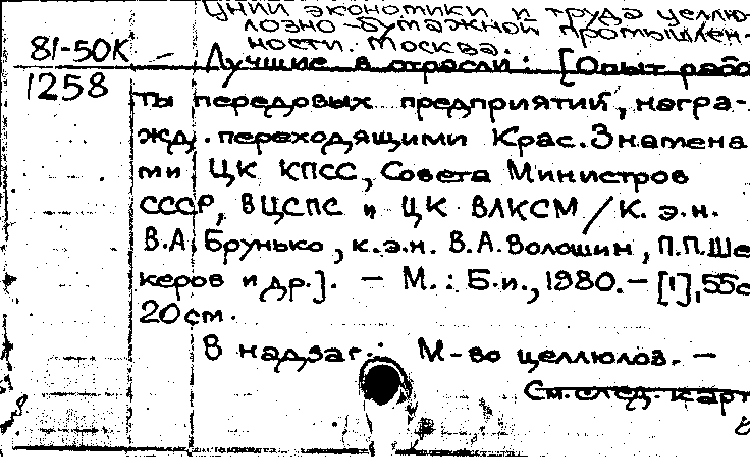 ЦНИИ экономики и труда целлю
лозно-бумажной промышлен-
ности. Москва.
81-50К
1258
Лучшие в отрасли: [Опыт рабо
ты передовых предприятий, награ-
жд. переходящими Крас. Знамена
ми ЦК КПСС, Совета Министров
СССР, ВЦСПС и ЦК ВЛКСМ / К.э.н.
В.А. Брунько, к.э.н. В.А. Волошин, П.П. Ше
керов и др.]. – М.: Б.и., 1980. – [1], 55с
20 см.
В надзаг.: М-во целлюлоз. –
См. след. карт